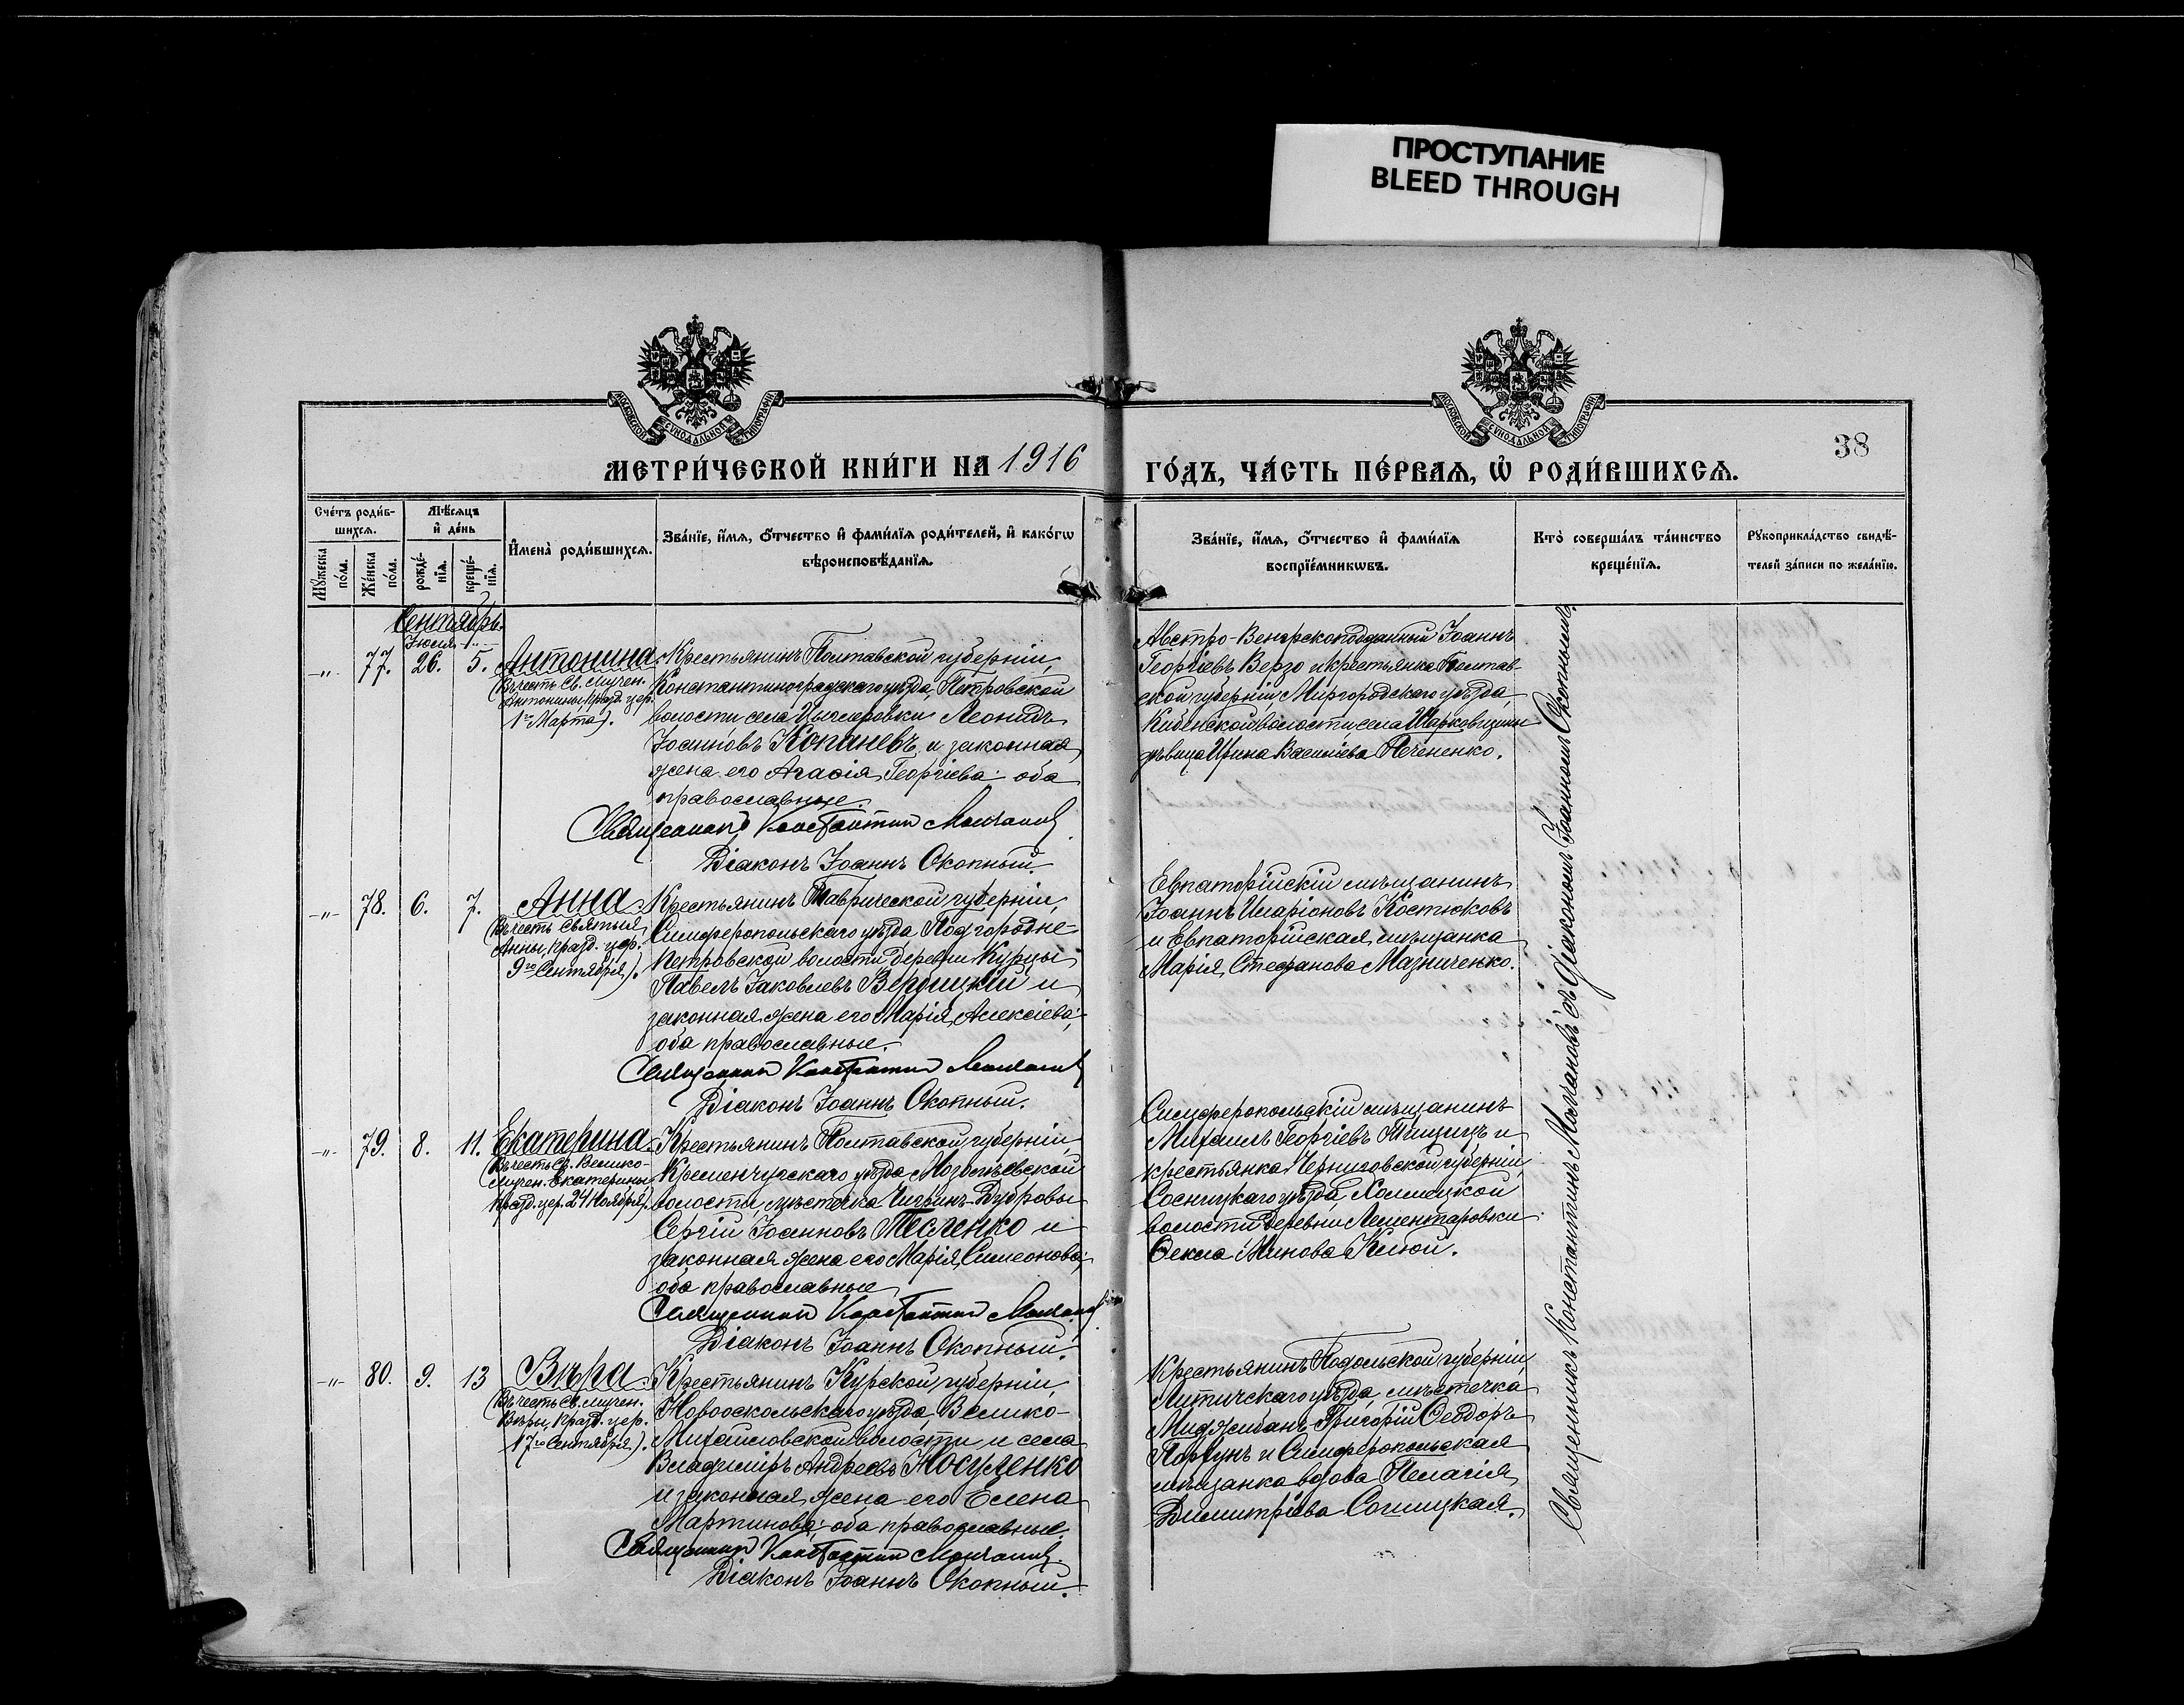 ПРОСТУПАНИЕ
BLEED THROUGH
МОСКОВСКОЙ СѴНОДАЛЬНОЙ ТИПОГРАФІИ
МОСКОВСКОЙ СѴНОДАЛЬНОЙ ТИПОГРАФІИ
38
МЕТРИ́ЧЕСКОЙ КНИ́ГИ НА 1916
ГО́ДЪ, ЧА́СТЬ ПЕ́РВАѦ, Ѡ҆ РОДИ́ВШИХСѦ.
Сче́тъ роди́в-
шихсѧ.
Мꙋ́жеска по́ла.
Же́нска по́ла.
Мѣ́сѧцъ
и҆ де́нь
рожде́-
нїѧ.
креще́-
нїѧ.
И҆мена̀ роди́вшихсѧ.
Зва́нїе, и҆́мѧ, ѻ҆́тчество и҆ фами́лїѧ роди́телей, и҆ како́гѡ
вѣроисповѣ́данїѧ.
Зва́нїе, и҆́мѧ, ѻ҆́тчество и҆ фами́лїѧ
воспрїе́мникѡвъ.
Кто̀ соверша́лъ та́инство
креще́нїѧ.
Рꙋкоприкла́дство свидѣ́-
телей за́писи по жела́нїю.
Сентябрь.
Іюля
-„- 77. 26. 5. Антонина
(Въ честь Св. мучен.
Антонины, празд. цер.
1го Марта).
Крестьянинъ Полтавской губерніи,
Константиноградскаго уѣзда, Петровской
волости села Цыглеровки Леонидъ
Іоанновъ Копаневъ и законная
жена его Агафія Георгіева: оба
православные.
Священникъ Константин Молчанов
Діаконъ Іоаннъ Окопный.
Австро-Венгерскоподданный Іоаннъ
Георгіевъ Верго и крестьянка Полтав-
ской губерніи, Миргородскаго уѣзда,
Кибенской волости села Шарковщины
дѣвица Ирина Василіева Печененко.
-„- 78. 6. 7. Анна
(Въ честь Святыя
Анны, празд. цер.
9го Сентября).
Крестьянинъ Таврической губерніи,
Симферопольскаго уѣзда, Подгородне-
Петровской волости деревни Курцы
Павелъ Іаковлевъ Вербицкій и
законная жена его Марія Алексіева:
оба православные.
Священникъ Константин Молчанов
Діаконъ Іоаннъ Окопный.
Евпаторійскій мѣщанинъ
Іоаннъ Иларіоновъ Костюковъ
и Евпаторійская мѣщанка
Марія Стефанова Мазниченко.
-„- 79. 8. 11. Екатерина
(Въ честь Св. Велико-
мучен. Екатерины,
празд. цер. 24 Ноября).
Крестьянинъ Полтавской губерніи,
Кременчугскаго уѣзда,
волости, мѣстечка Чигринъ-Дубровы
Сергій Іоанновъ Тесленко и
законная жена его Марія Симеонова:
оба православные
Священникъ Константин Молчанов
Діаконъ Іоаннъ Окопный.
Симферопольскій мѣщанинъ
Михаилъ Георгіевъ и
крестьянка Черниговской губерніи,
Сосницкаго уѣзда, Холмецкой
волости деревни Лементаровки
Ѳекла Минова Клюй.
-„- 80. 9. 13 Вѣра
(Въ честь Св. мучен.
Вѣры, празд. цер.
17го Сентября).
Крестьянинъ Курской губерніи,
Новооскольскаго уѣзда, Велико-
Михайловской волости и села
Владиміръ Андреевъ Носуленко
и законная жена его Елена
Мартинова: оба православные.
Священникъ Константин Молчанов.
Діаконъ Іоаннъ Окопный.
Крестьянинъ Подольской губерніи,
Литичскаго уѣзда, мѣстечка
Меджибажъ Григорій Ѳеодоръ
и Симферопольская
мѣщанка вдова Пелагія
Димитріева
Священникъ Константинъ Молчановъ съ діакономъ Іоанномъ Окопнымъ